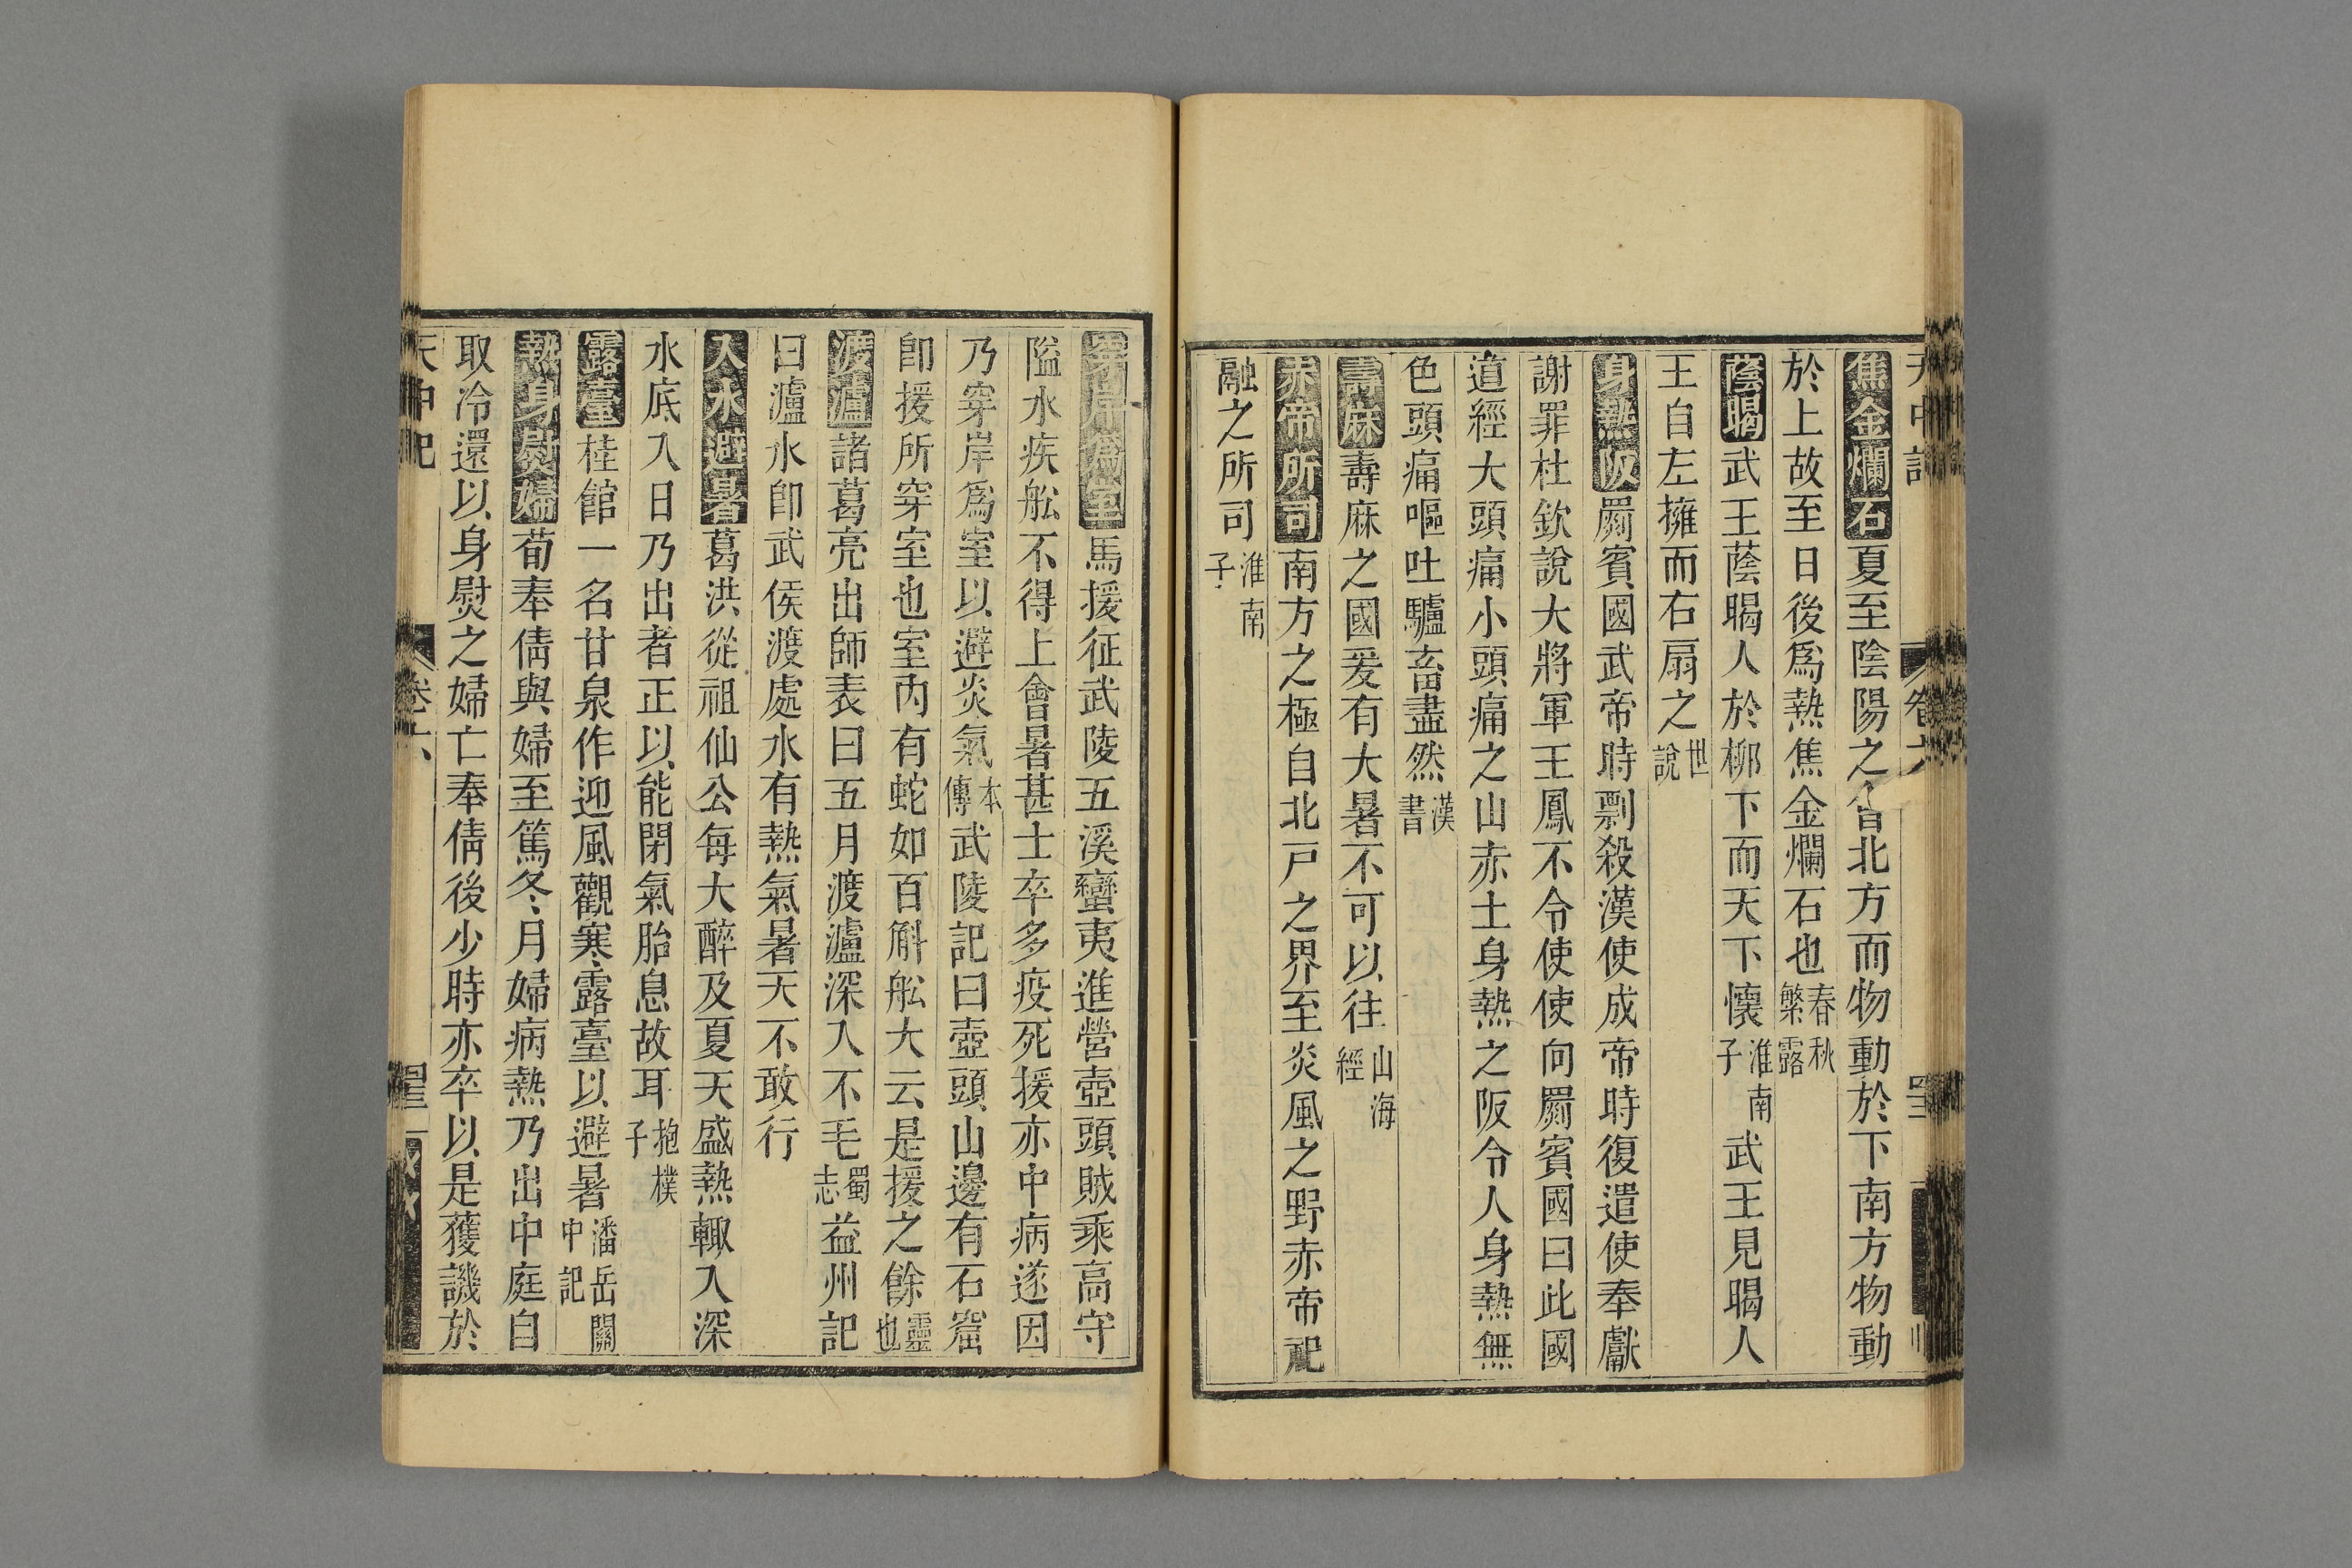 天中記 卷六
焦金爛石夏至陰陽之㫺北方而物動於下南方物動
於上故至日後爲熱焦金爛石也春秋繁露
蔭暍武王蔭暍人於柳下而天下懷淮南子武王見暍人
王自左擁而右扇之世說
身熱阪罽賓國武帝時剽殺漢使成帝時復遣使奉獻
謝罪杜欽說大將軍王鳳不令使使向罽賓國曰此國
道經大頭痛小頭痛之山赤土身熱之阪令人身熱無
色頭痛嘔吐驢畜盡然漢書
壽麻壽麻之國爰有大暑不可以往山海經
赤帝所司南方之極自北戸之界至炎風之野赤帝祀
融之所司淮南子
穿岸爲室馬援征武陵五溪蠻夷進營壺頭賊乘高守
隘水疾舩不得上會暑甚士卒多疫死援亦中病遂因
乃穿岸爲室以避炎氣本傳武陵記曰壺頭山邊有石窟
卽援所穿室也室內有蛇如百斛舩大云是援之餘靈也
渡瀘諸葛亮出師表曰五月渡瀘深入不毛蜀志益州記
曰瀘水卽武侯渡處水有熱氣暑天不敢行
入水避暑葛洪從祖仙公每大醉及夏天盛熱輙入深
水底入日乃出者正以能閉氣胎息故耳抱樸子
露臺桂館一名甘泉作迎風觀寒露臺以避暑潘岳關中記
熱身熨婦荀奉倩與婦至篤冬月婦病熱乃出中庭自
取冷還以身熨之婦亡奉倩後少時亦卒以是獲譏於
天中記 卷六